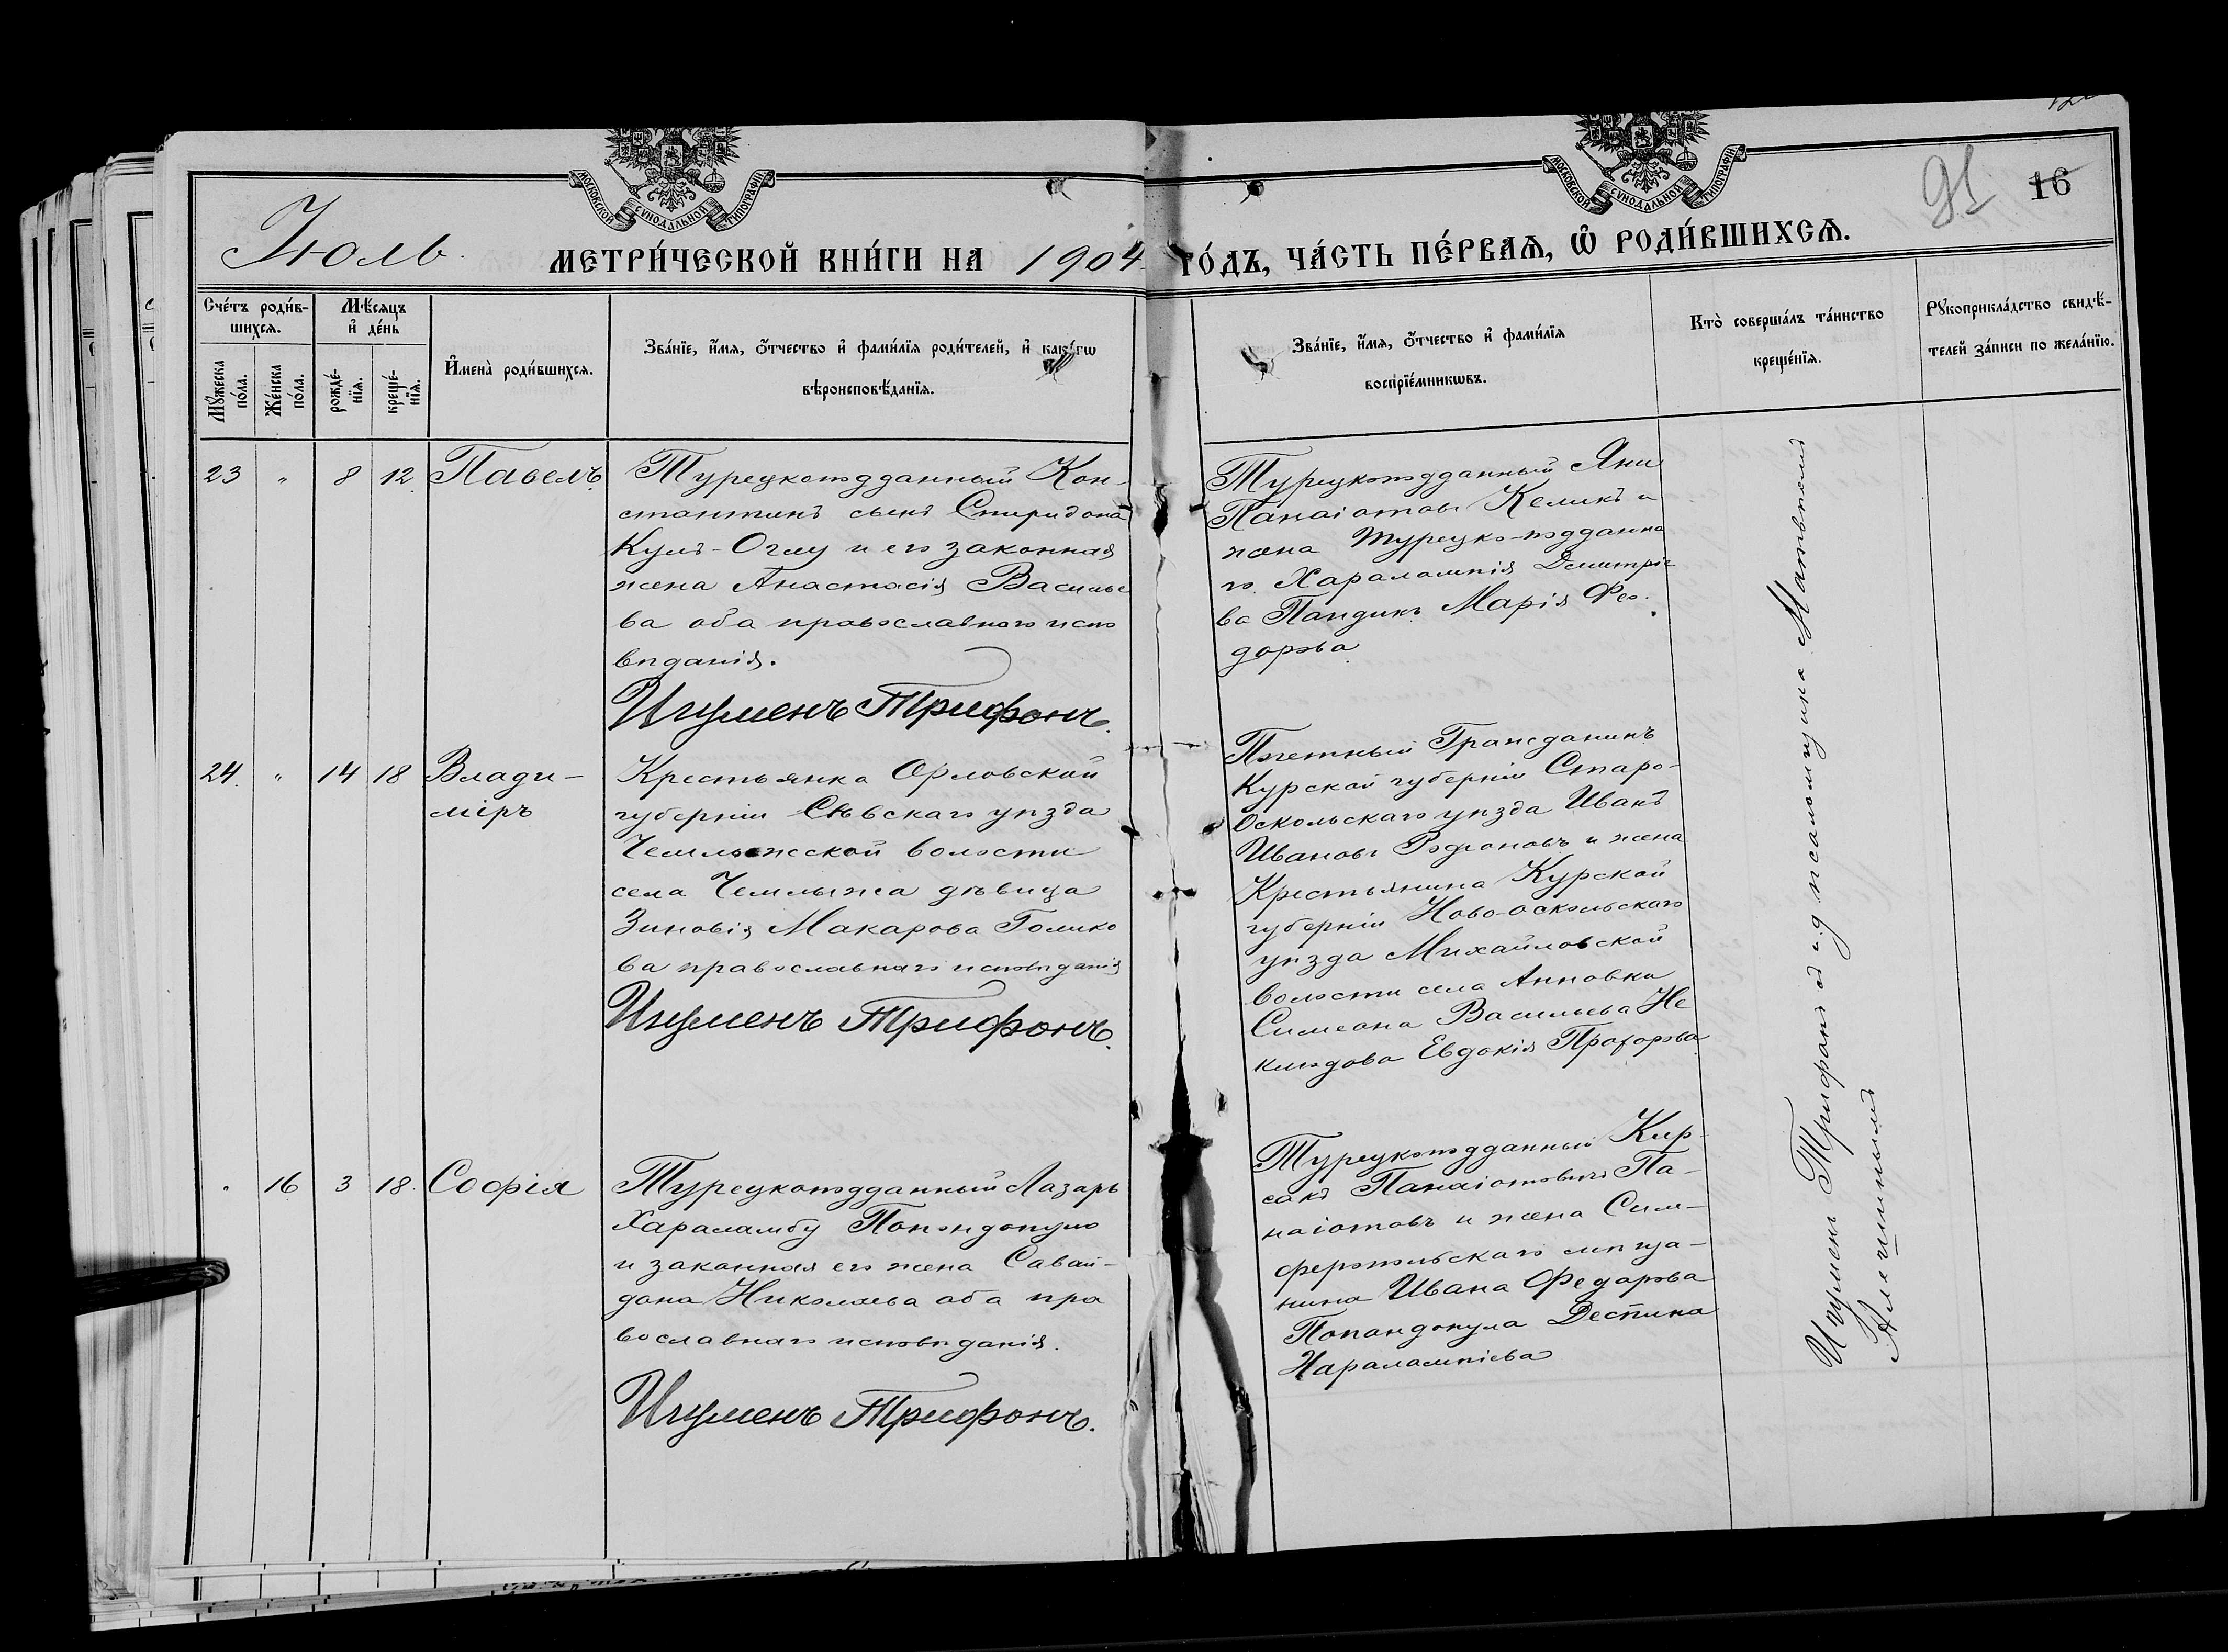 МОСКОВСКОЙ СѴНОДАЛЬНОЙ ТИПОГРАФІИ
МОСКОВСКОЙ СѴНОДАЛЬНОЙ ТИПОГРАФІИ
91 16
Іюль. МЕТРИ́ЧЕСКОЙ КНИ́ГИ НА 1904 ГО́ДЪ, ЧА́СТЬ ПЕ́РВАѦ, Ѽ РОДИ́ВШИХСѦ.
Сче́тъ роди́в-
шихсѧ.
Мꙋ́жеска по́ла.
Же́нска по́ла.
Мѣ́сѧцъ
и҆ де́нь
рожде́-
нїѧ.
креще́-
нїѧ.
И҆мена̀ роди́вшихсѧ.
Зва́нїе, и҆́мѧ, ѻ҆́тчество и҆ фами́лїѧ роди́телей, и҆ како́гѡ
вѣроисповѣ́данїѧ.
Зва́нїе, и҆́мѧ, ѻ҆́тчество и҆ фами́лїѧ
воспрїе́мникѡвъ.
Кто̀ соверша́лъ та́инство
креще́нїѧ.
Рꙋкоприкла́дство свидѣ́-
телей за́писи по жела́нїю.
23 " 8 12 Павелъ
Турецкоподданный Кон-
стантинъ сынъ Спиридона
Кулъ-Оглу и его законная
жена Анастасія Василье
ва оба православнаго испо
вѣданія.
Игуменъ Трифонъ.
Турецкоподданный Яни
Панаіотовъ Келикъ и
жена турецко-поддана
го Харалампія Димитріе
ва Пандикъ Марія Фео-
дорова
24. " 14 18 Влади-
міръ
Крестьянка Орловской
губерніи Сѣвскаго уѣзда
Чемлыжской волости
села Чемлыжа дѣвица
Зиновія Макарова Голико
ва православнаго исповѣданія
Игуменъ Трифонъ.
Почетный Гражданинъ
Курской губерніи Старо-
Оскольскаго уѣзда Иванъ
Ивановъ Родіоновъ и жена
Крестьянина Курской
губерніи Ново-Оскольскаго
уѣзда Михайловской
волости села Анновка
Симеона Васильева Не
клюдова Евдокія Прохорова
" 16 3 18. Софія
Турецкоподданный Лазарь
Харалам­бу Попондопуло
и законная его жена Савай-
дона Николаева оба пра
вославнаго исповѣданія.
Игуменъ Трифонъ.
Турецкоподданный Кир-
сакъ Панаіотовичъ Па-
наіотовъ и жена Сим-
феропольскаго мѣща-
нина Ивана Федорова
Попандопула Деспина
Харалампіева
Игуменъ Трифонъ съ и.д псаломщика Матвѣемъ